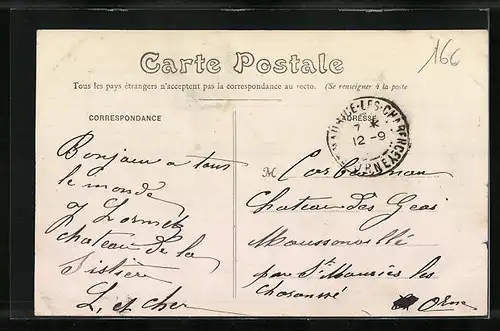 Carte Postale
166
Tous les pays étrangers n'acceptent pas la correspondance au recto. (Se renseigner à la poste
CORRESPONDANCE
ADRESSE
MAURICE-LES-CHARENCEY
ORNE
7 *
12-9
Bonjour a tous
le monde
J Lornet
chateau de la
Sistière
L. et cher
M Corbonnon
Chateau des Geai
Moussonvillé
par St Mauriès les
Orne